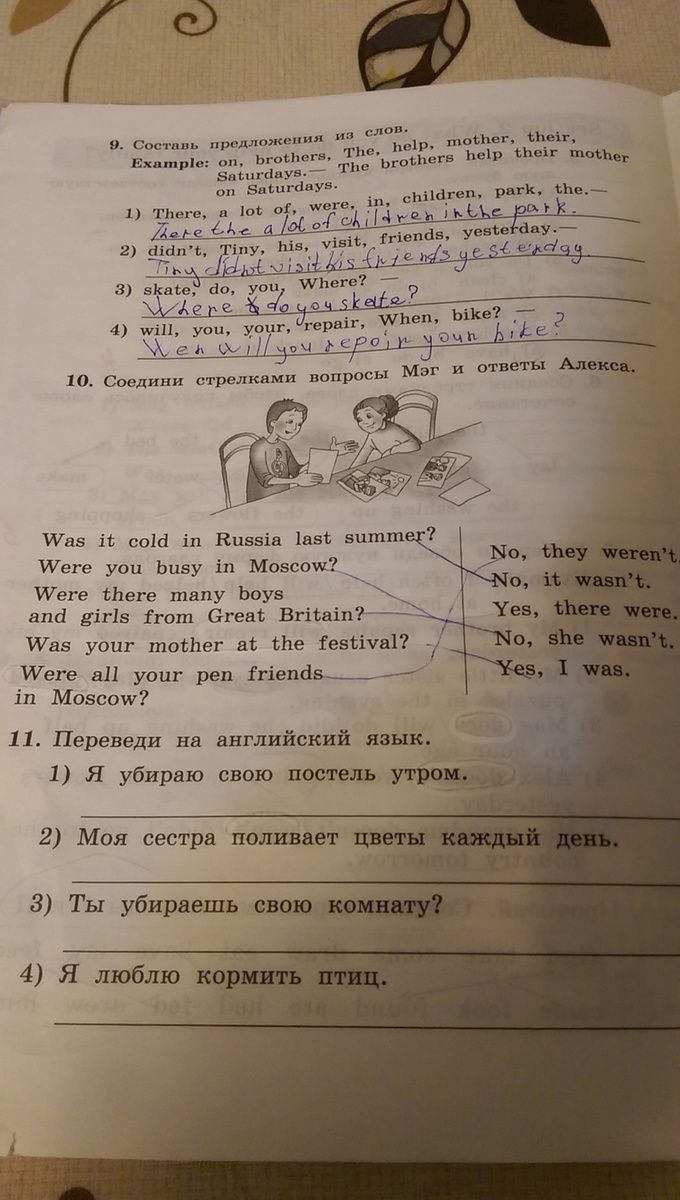 9. Составь предложения из слов.
Example: on, brothers, The, help, mother, their,
Saturdays.— The brothers help their mother
on Saturdays.
1) There, a lot of, were, in, children, park, the.—
There the a lot of children in the park.
2) didn't, Tiny, his, visit, friends, yesterday.—
Tiny didnt visit his friends yesterday.
3) skate, do, you, Where? —
Where do you skate?
4) will, you, your, repair, When, bike? —
Wen will you repair your bike?
10. Соедини стрелками вопросы Мэг и ответы Алекса.
Was it cold in Russia last summer?
Were you busy in Moscow?
Were there many boys
and girls from Great Britain?
Was your mother at the festival?
Were all your pen friends
in Moscow?
No, they weren't.
No, it wasn't.
Yes, there were.
No, she wasn't.
Yes, I was.
11. Переведи на английский язык.
1) Я убираю свою постель утром.
2) Моя сестра поливает цветы каждый день.
3) Ты убираешь свою комнату?
4) Я люблю кормить птиц.